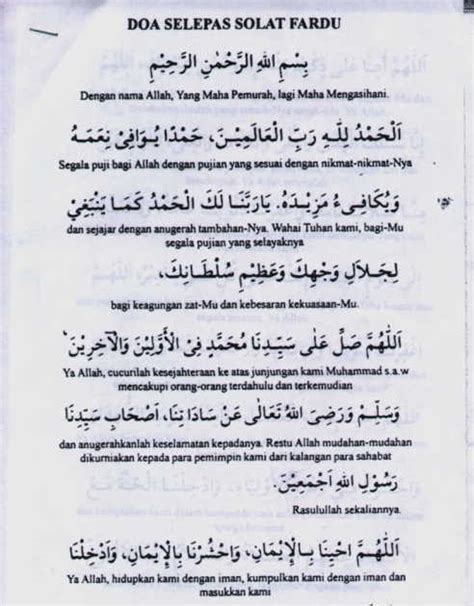 DOA SELEPAS SOLAT FARDU
بِسْمِ اللهِ الرَّحْمٰنِ الرَّحِيْمِ
Dengan nama Allah, Yang Maha Pemurah, lagi Maha Mengasihani.
اَلْحَمْدُ لِلّٰهِ رَبِّ الْعَالَمِيْنَ، حَمْدًا يُوَافِىْ نِعَمَهُ
Segala puji bagi Allah dengan pujian yang sesuai dengan nikmat-nikmat-Nya
وَيُكَافِىءُ مَزِيْدَهُ. يَارَبَّنَا لَكَ الْحَمْدُ كَمَا يَنْبَغِيْ
dan sejajar dengan anugerah tambahan-Nya. Wahai Tuhan kami, bagi-Mu
segala pujian yang selayaknya
لِجَلَالِ وَجْهِكَ وَعَظِيْمِ سُلْطَانِكَ،
bagi keagungan zat-Mu dan kebesaran kekuasaan-Mu.
اَللّٰهُمَّ صَلِّ عَلٰى سَيِّدِنَا مُحَمَّدٍ فِى الْأَوَّلِيْنَ وَالْآخِرِيْنَ
Ya Allah, cucurilah kesejahteraan ke atas junjungan kami Muhammad s.a.w
mencakupi orang-orang terdahulu dan terkemudian
وَسَلِّمْ وَرَضِىَ اللهُ تَعَالٰى عَنْ سَادَاتِنَا، اَصْحَابِ سَيِّدِنَا
dan anugerahkanlah keselamatan kepadanya. Restu Allah mudahan-mudahan
dikurniakan kepada para pemimpin kami dari kalangan para sahabat
رَسُوْلِ اللهِ اَجْمَعِيْنَ.
Rasulullah sekaliannya.
اَللّٰهُمَّ احْيِنَا بِالْإِيْمَانِ، وَاحْشُرْنَا بِالْإِيْمَانِ، وَاَدْخِلْنَا
Ya Allah, hidupkan kami dengan iman, kumpulkan kami dengan iman dan
masukkan kami